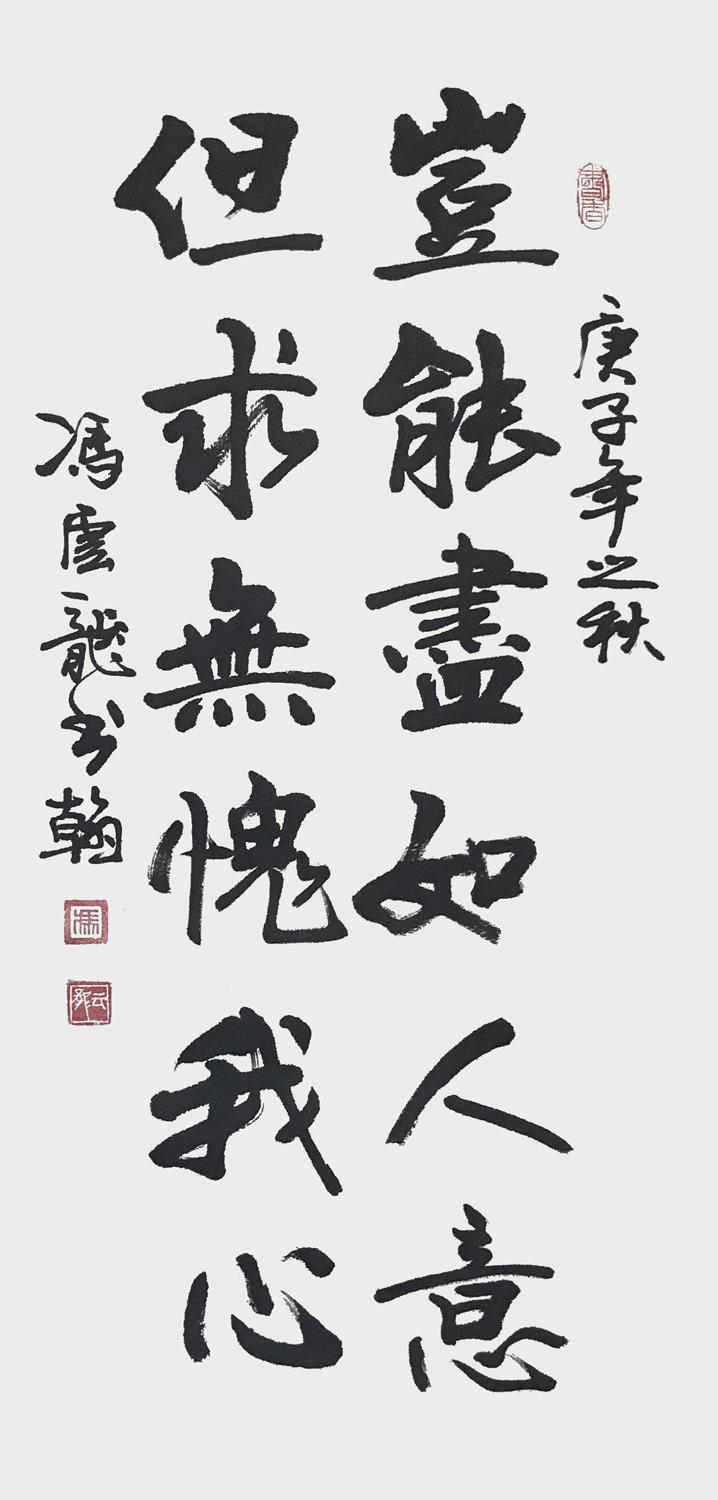 庚子年之秋
豈能盡如人意
但求無愧我心
馮雲龍书翰
書香
馮
云龍